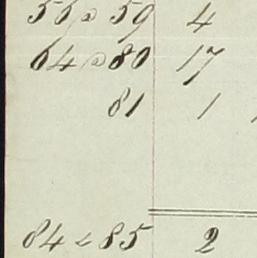 56 @ 59 4
64 @ 80 17
81 1
84 < 85 2